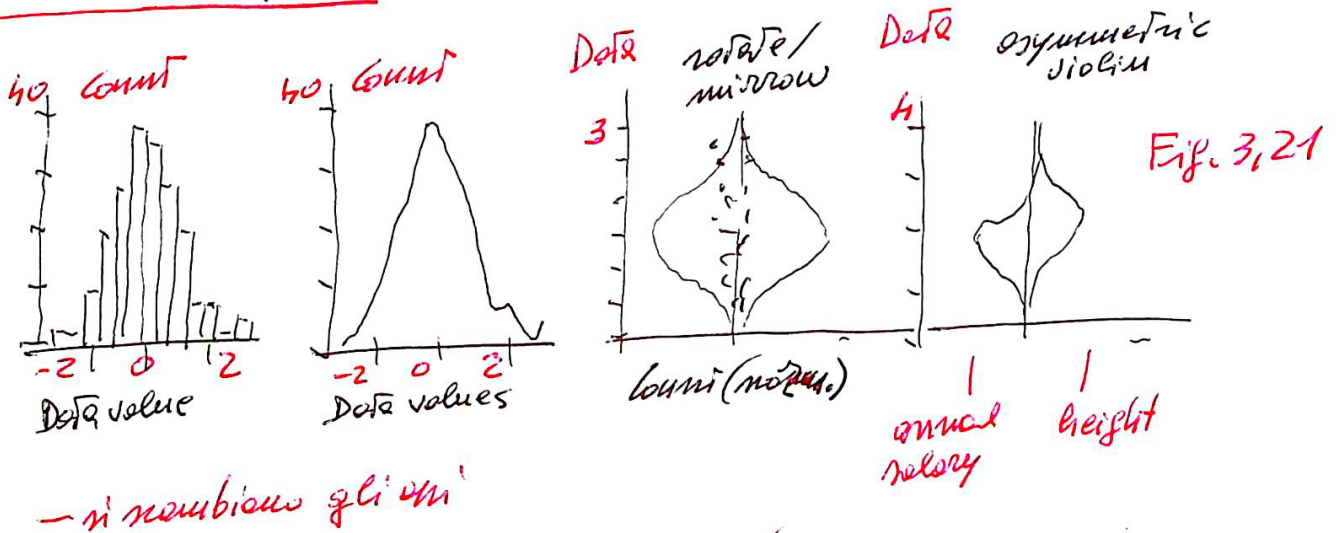 40 Count
-2 0 2
Data value
40 Count
-2 0 2
Data values
Data
rotate/
mirrow
3
Count
Data
asymmetric
violin
4
annual
salary
height
Fig. 3,21
- si scambiano gli assi